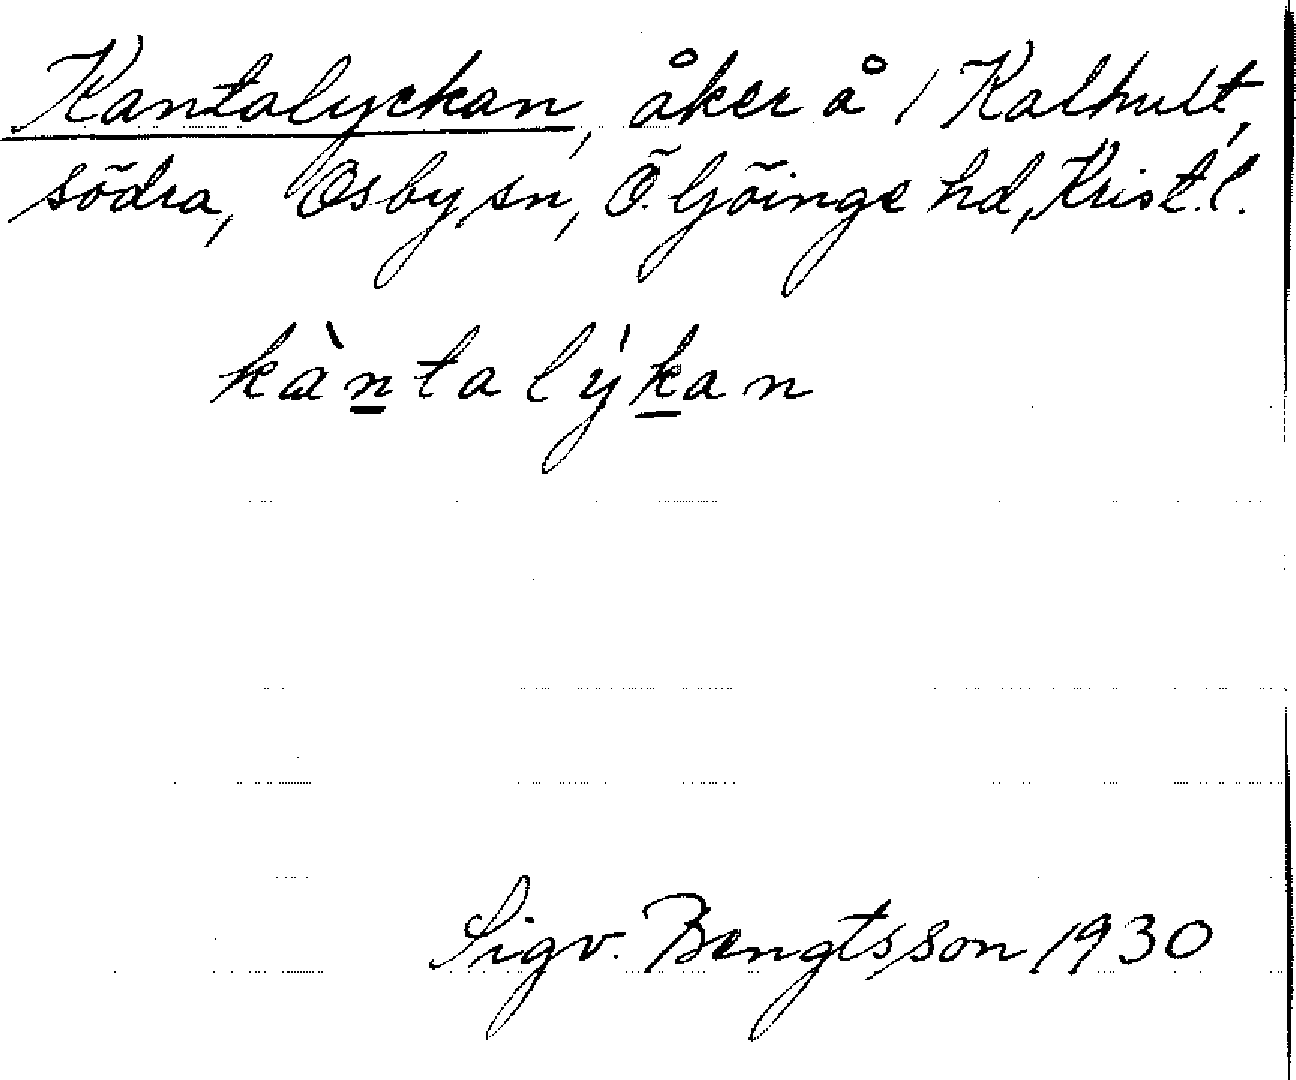 Kantalyckan, åker å 1 Kalhult,
södra, Osby sn, Ö. Göinge hd, Krist. l.
kàntalýkan
Sigv. Bengtsson 1930